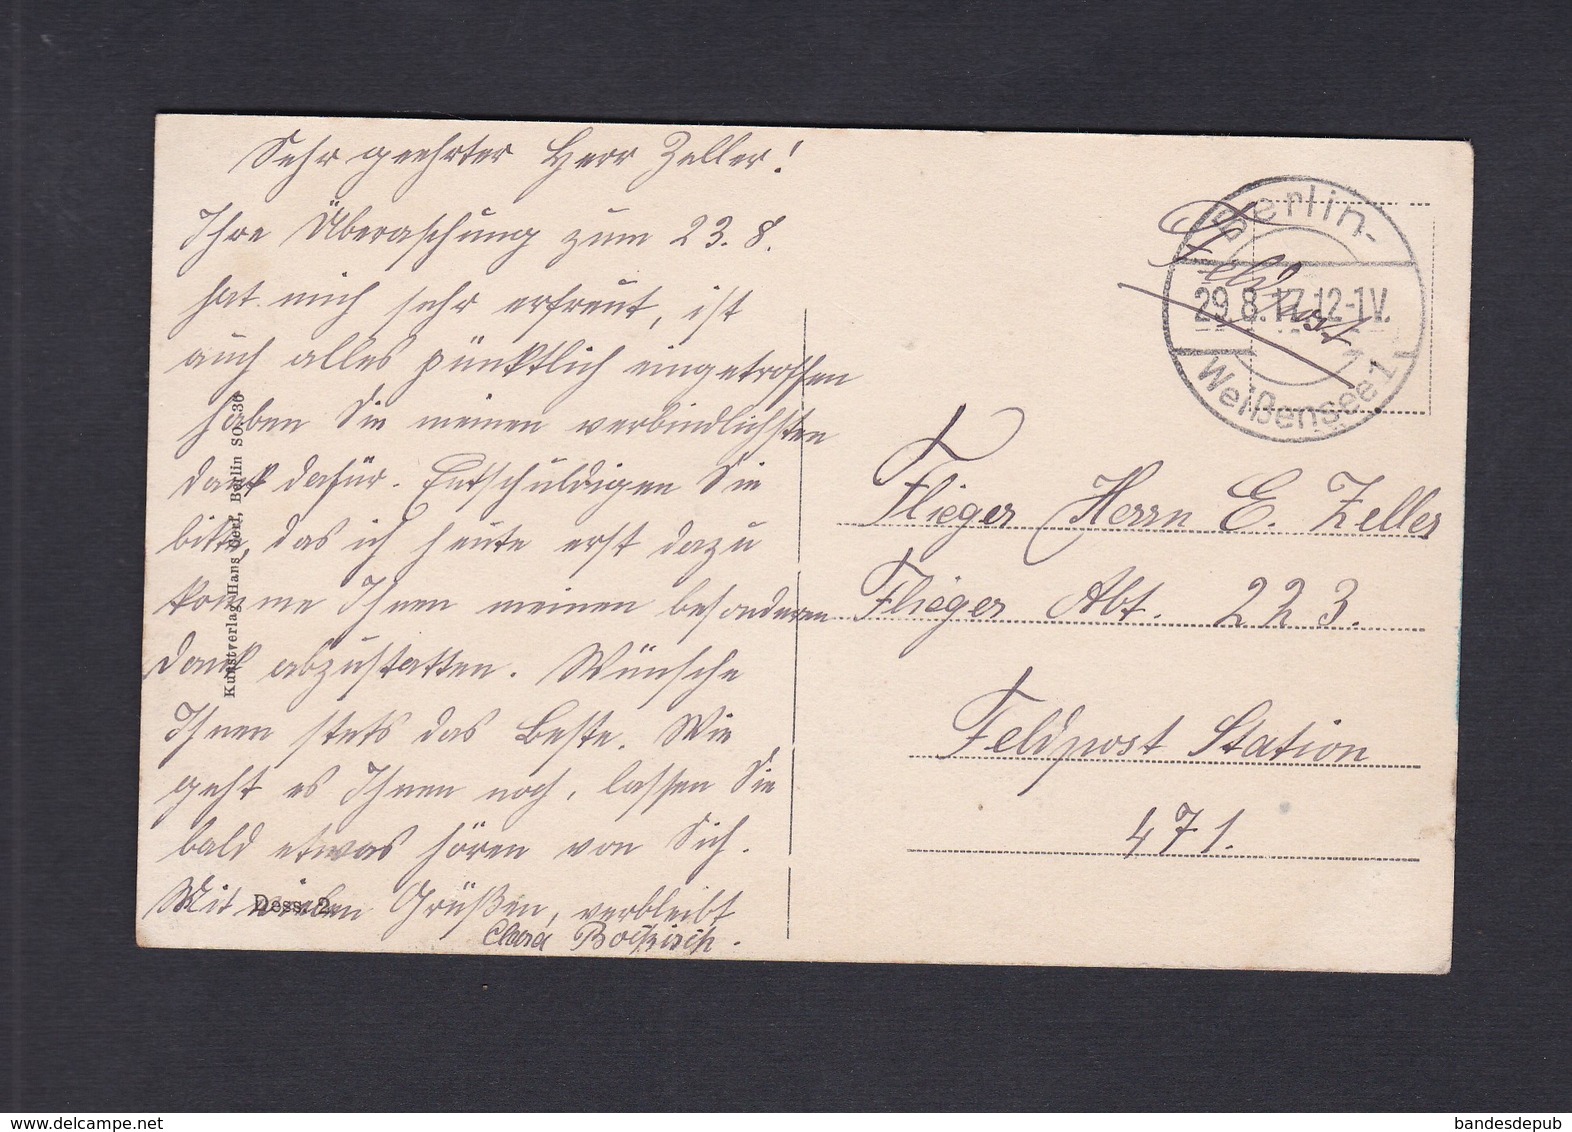 Sehr geehrter Herr Zeller!
Ihre Überaschung zum 23. 8.
hat mich sehr erfreut, ist
auch alles pünktlich eingetroffen
haben Sie meinen verbindlichsten
Dank dafür. Entschuldigen Sie
bitte, das ich heute erst dazu
komme Ihnen meinen besonderen
Dank abzustatten. Wünsche
Ihnen stets das Beste. Wie
geht es Ihnen noch, lassen Sie
bald etwas hören von Sich.
Mit vielen Grüßen, verbleibt
Clara
Kunstverlag Hans Gerl, Berlin SO. 36
Dess. 2
Feldpost
Berlin-
29.8.17.12-1V.
Weißensee 1
Flieger Herrn E. Zeller
Flieger Abt. 223.
Feldpost Station
471.
bandesdepub